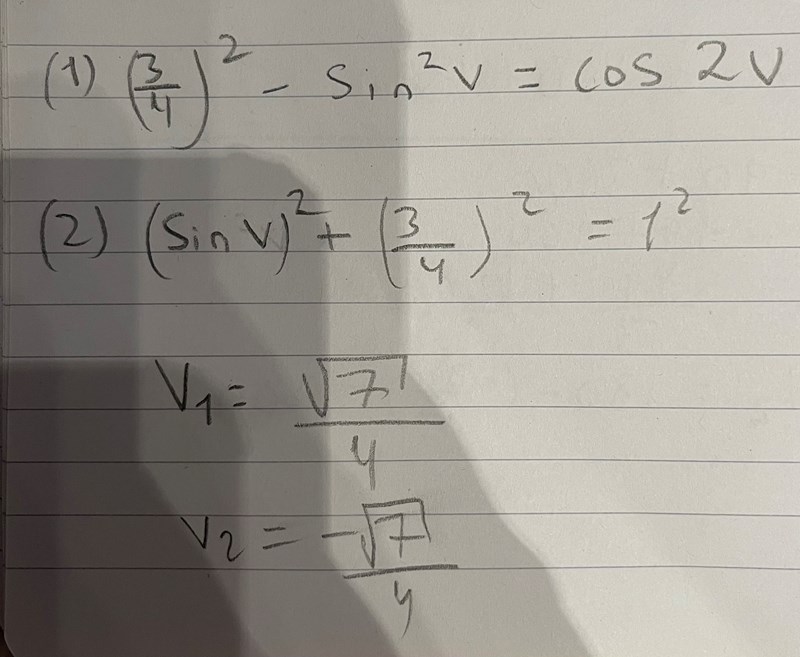 (1) (3/4)² - Sin²v = cos 2v
(2) (Sin v)² + (3/4)² = 1²
V₁ = √7/4
V₂ = -√7/4